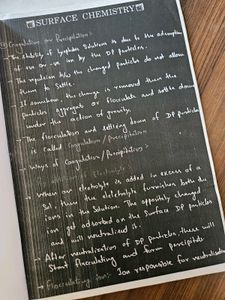 SURFACE CHEMISTRY
Coagulation or Precipitation:
→ The stability of lyophobic solutions is due to the adsorption
of +ve or -ve ion by the DP particles.
→ The repulsion b/w the charged particles do not allow
them to settle.
→ If somehow, the charge is removed then the
particles aggregate or flocculate and settle down
under the action of gravity.
→ The flocculation and settling down of DP particles
is called Coagulation/precipitation
→ Ways of Coagulation/Precipitation:-
of Electrolyte
When an electrolyte is added in excess of a
Sol. then the electrolyte furnishes both the
ions in the Solution. The oppositely charged
ion get adsorbed on the Surface DP particles
and will neutralised it.
→ After neutralization of DP particles, these will
Start flocculating and form precipitate
→ Flocculating Ion: Ion responsible for neutralisation